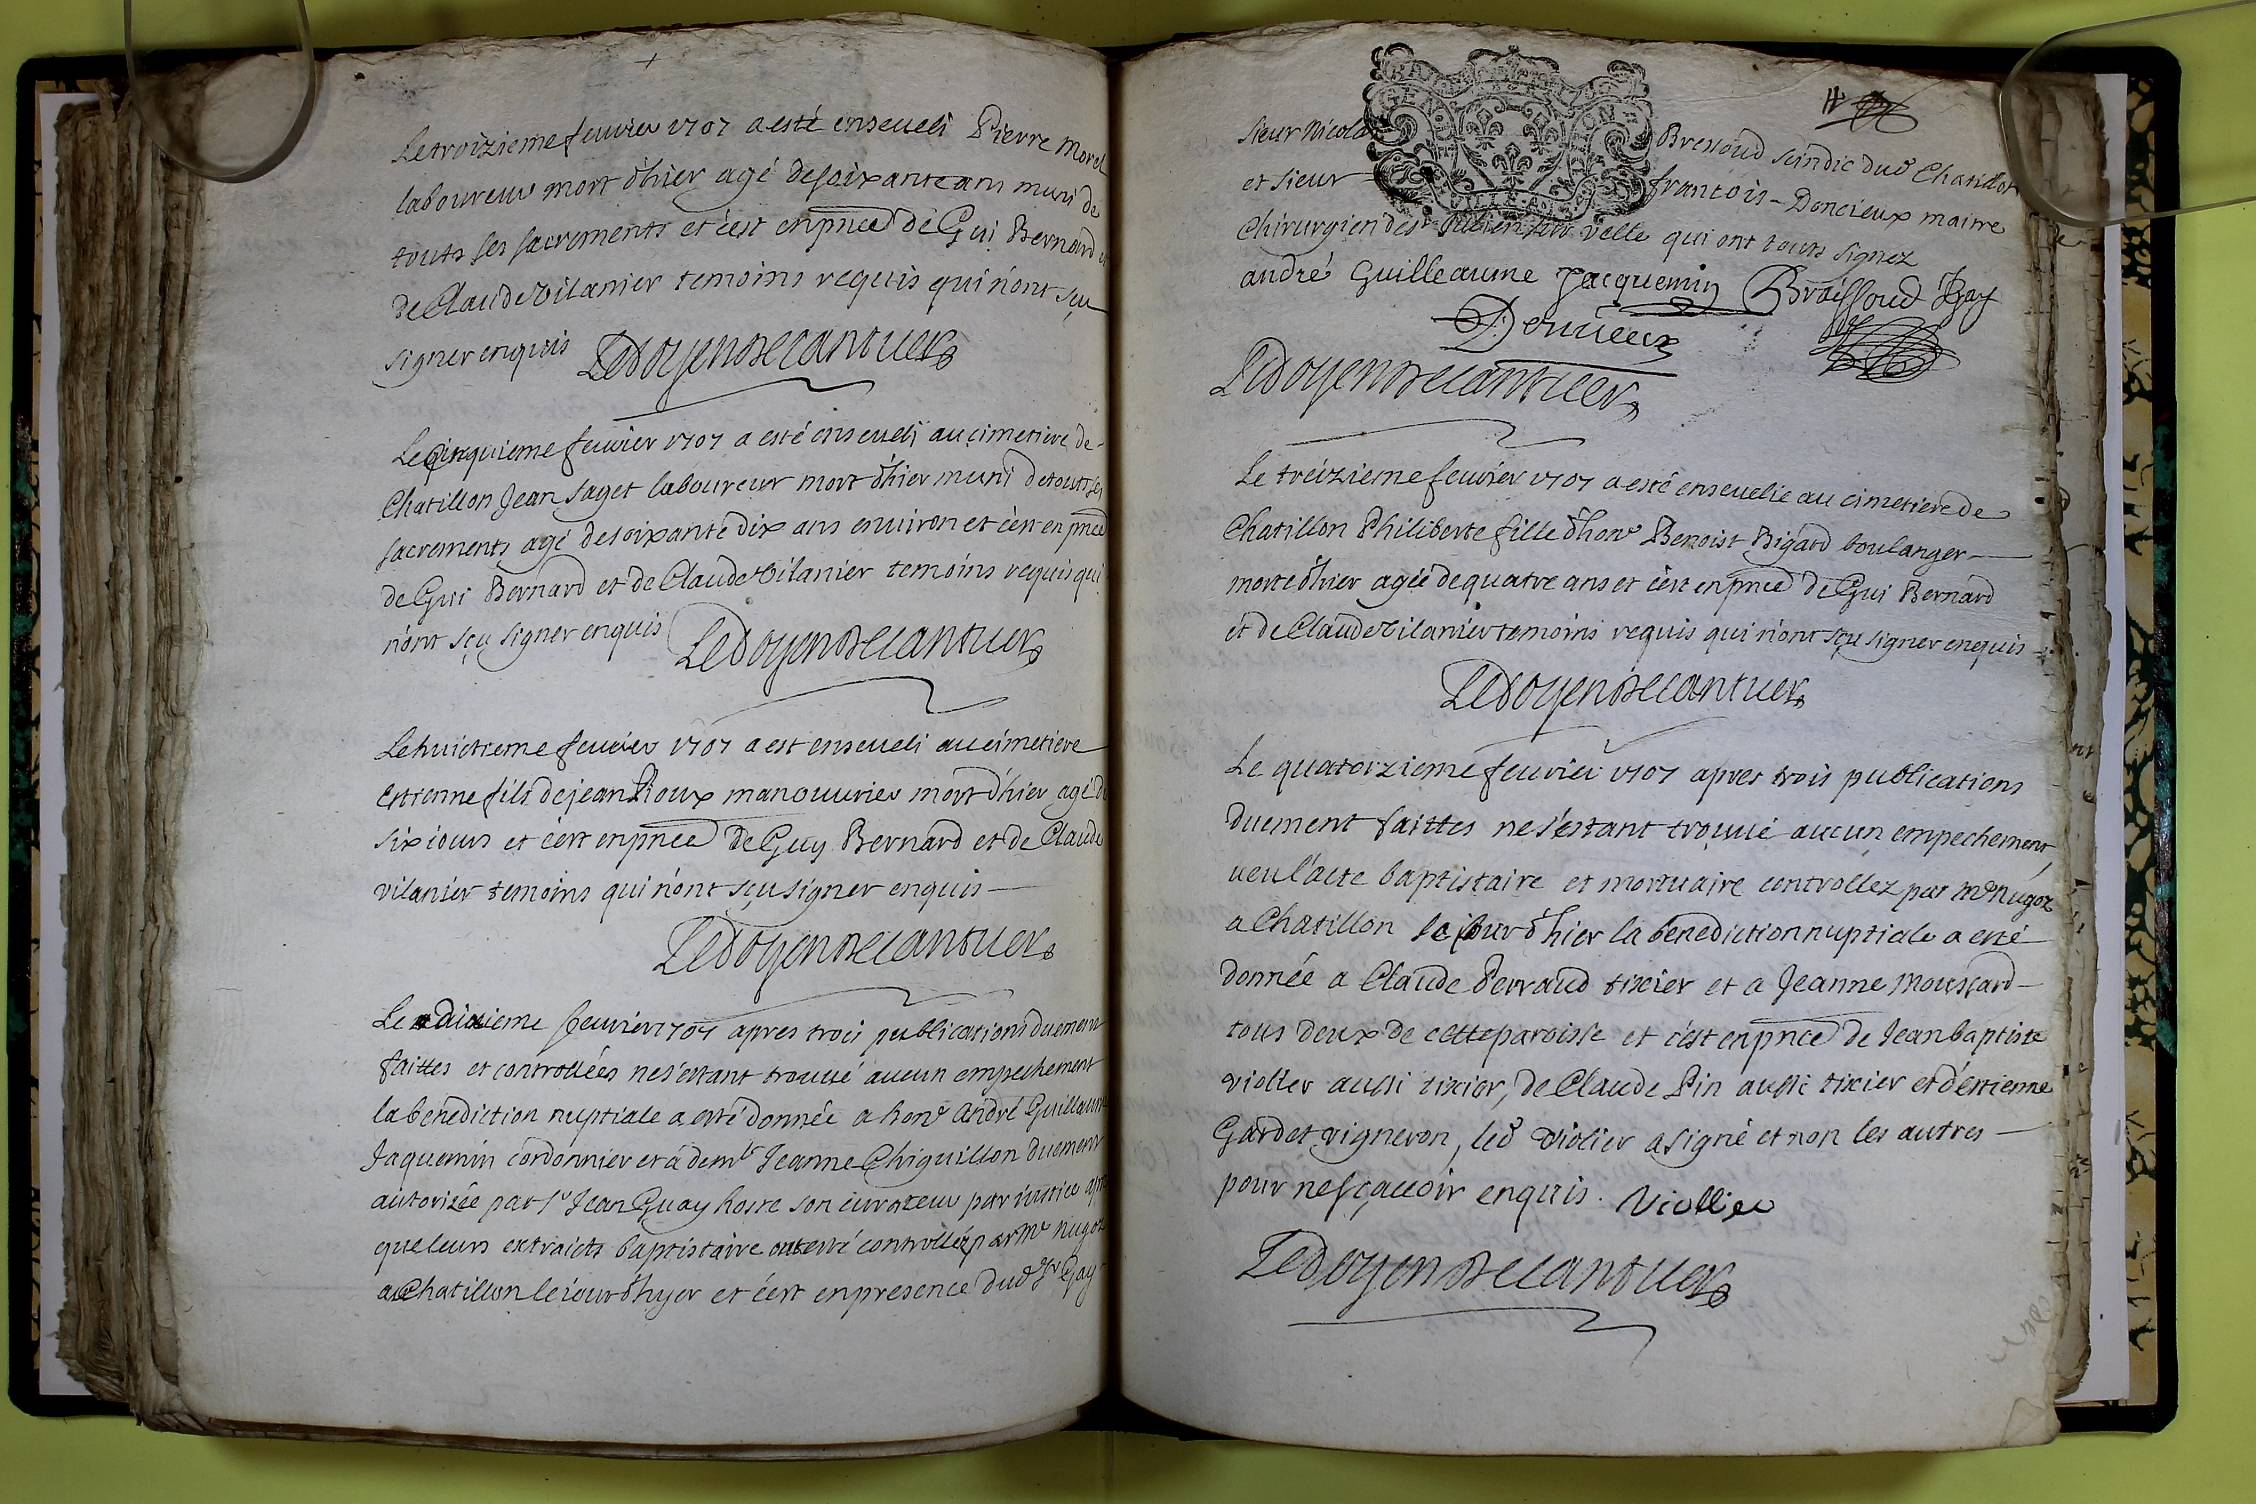 Le troizieme feuvier 1707 a esté enseveli Pierre Morel
laboureur mort d'hier agé de soixante ans muni de
touts ses sacrements et c'est en pnce de Gui Bernard et
de Claude Vilanier temoins requis qui n'ont sçu
signer enquis Ledoyen De cantuer
Le cinquieme feuvier 1707 a esté enseveli au cimetiere de
Chatillon Jean Saget laboureur mort d'hier muni de touts ses
sacrements agé de soixante dix ans environ et c'est en pnce
de Gui Bernard et de Claude Vilanier temoins requis qui
n'ont sçu signer enquis Ledoyen De cantuer
Le huictieme feuvier 1707 a est enseveli au cimetiere
Estienne fils de jean Pioux manouvrier mort d'hier agé de
six iours et c'est en pnce De Guy Bernard et de Claude
vilanier temoins qui n'ont sçu signer enquis
Ledoyen De cantuer
Le dixieme feuvier 1707 apres trois publications duement
faittes et controllées ne s'estant trouvé aucun empechement
la benediction nuptiale a esté donnée a hone André Guillaume
Jaquemin cordonnier et a demle Jeanne Chiguillon duement
autorizée par sr Jean Guay hoste son curateur par iustice apres
que leurs extraicts baptistaire ont esté controllés par Mr nugoz
a Chatillon le iour d'hyer et c'est en presence dud sr Gay
Sieur Nicolas Bressoud scindic dud Chatillon
et sieur francois Doncieux maitre
Chirurgien de st Julien sur velle qui ont touts signez
andré Guilleaume Jacquemin Braissoud Gay
Doncieux
Ledoyen De cantuer
Le treizieme feuvier 1707 a esté ensevelie au cimetiere de
Chatillon Philiberte fille d'hone Benoist Bigard boulanger
morte d'hier agée de quatre ans et c'est en pnce de Gui Bernard
et de Claude Vilanier temoins requis qui n'ont sçu signer enquis
Ledoyen De cantuer
Le quatorzieme feuvier 1707 apres trois publications
duement faittes ne s'estant trouvé aucun empechement
veu l'acte baptistaire et mortuaire controllez par Mr Nugoz
a Chatillon le jour d'hier la benediction nuptiale a esté
donnée a Claude Perraud tixier et a Jeanne Moussard
tous deux de cette paroisse et c'est en pnce de Jean baptiste
viollier aussi tixier, de Claude Pin aussi tixier et d'estienne
Gardet vigneron, led Violier a signé et non les autres
pour ne sçavoir enquis. Viollier
Ledoyen De cantuer